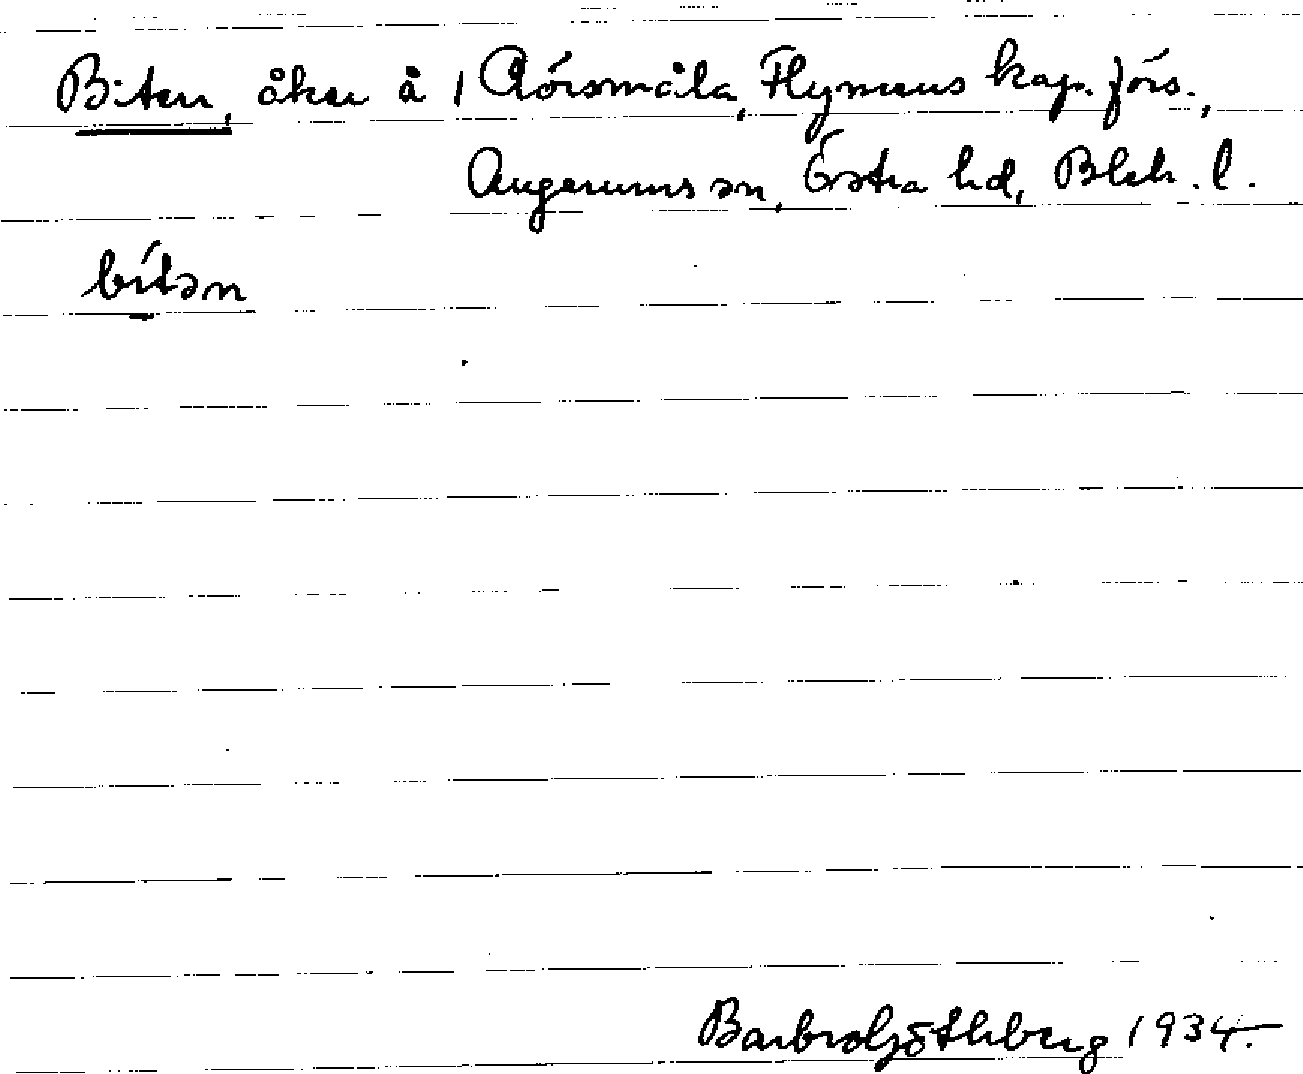 Biten, åker å 1 Rörsmåla, Flymens kap. förs.,
Augerums sn, Östra hd, Blek. l.
bítən
Barbro Göthberg 1934.